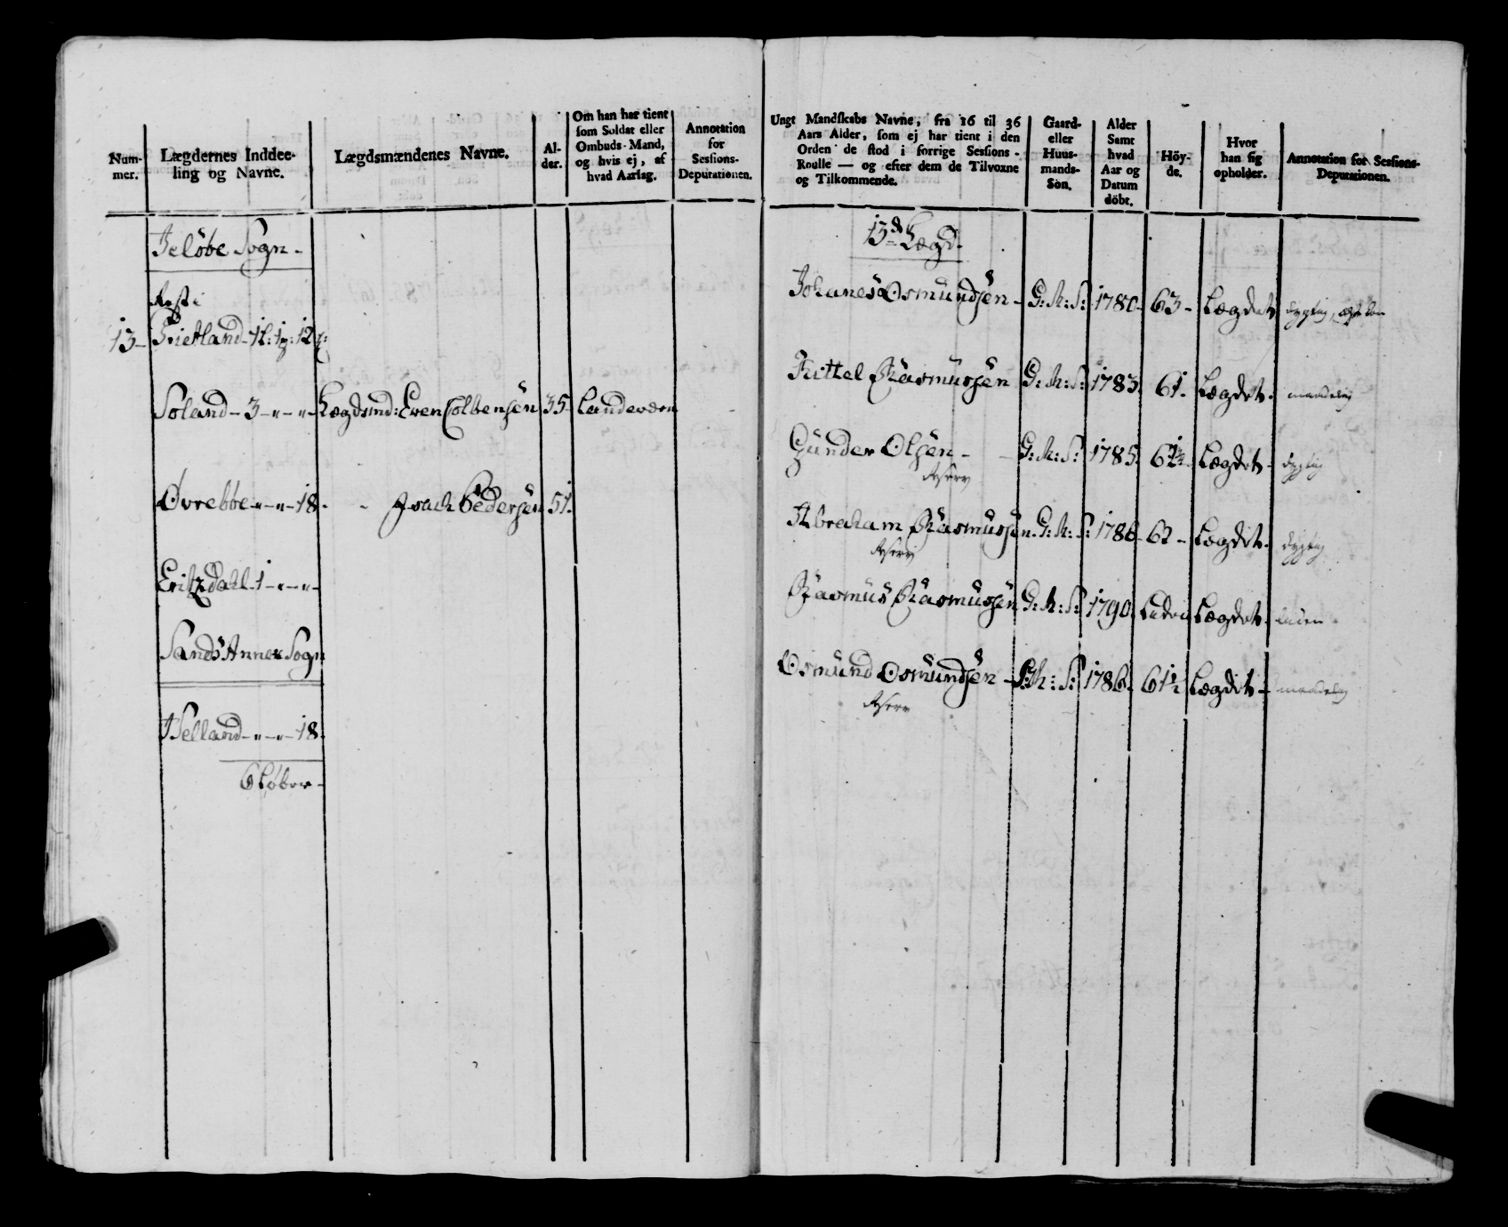 Num-
mer.
Lægdernes Inddee-
ling og Navne.
Lægdsmændenes Navne.
Al-
der.
Om han har tient
som Soldat eller
Ombuds-Mand,
og hvis ej, af
hvad Aarlag.
Annotation
for
Sessions-
Deputationen.
Jeløbe Sogn -
13 - Frietland - 1 1: 12
Soland - 3 - " - " - Lægdsmd: Even Colbensen 35 - Landeværn
Øvrebøe - " - " - 18 - - Isach Pedersen 51.
Eritzdahl - 1 - " - " -
Sands Annex Sogn
Helland - " - " - 18 -
6 Løber -
Ungt Mandskabs Navne, fra 16 til 36
Aars Alder, som ej har tient i den
Orden de stod i forrige Sessions-
Roulle — og efter dem de Tilvoxne
og Tilkommende.
Gaard-
eller
Huus-
mands-
Søn.
Alder
Samt
hvad
Aar og
Datum
døbt.
Höy-
de.
Hvor
han sig
opholder.
Annotation for Sessions-
Deputationen.
13de Lægd -
Johanes Osmundsen - G: M: S: 1780 - 63 - Lægdet dygtig,
Kittel Rasmussen G: M: S: 1783. 61. Lægdet - maadelig
Gunder Olsen - - G: M: S: 1785. 62½ - Lægdet - dygtig
Reserv
Abraham Rasmussen - G: M: S: 1786 - 62 - Lægdet - dygtig
Reserv
Rasmus Rasmussen G: M: S: 1790 Liden Lægdet - liden -
Osmund Osmundsen - G: M: S: 1786. 61½ Lægdet - maadelig
Reserv